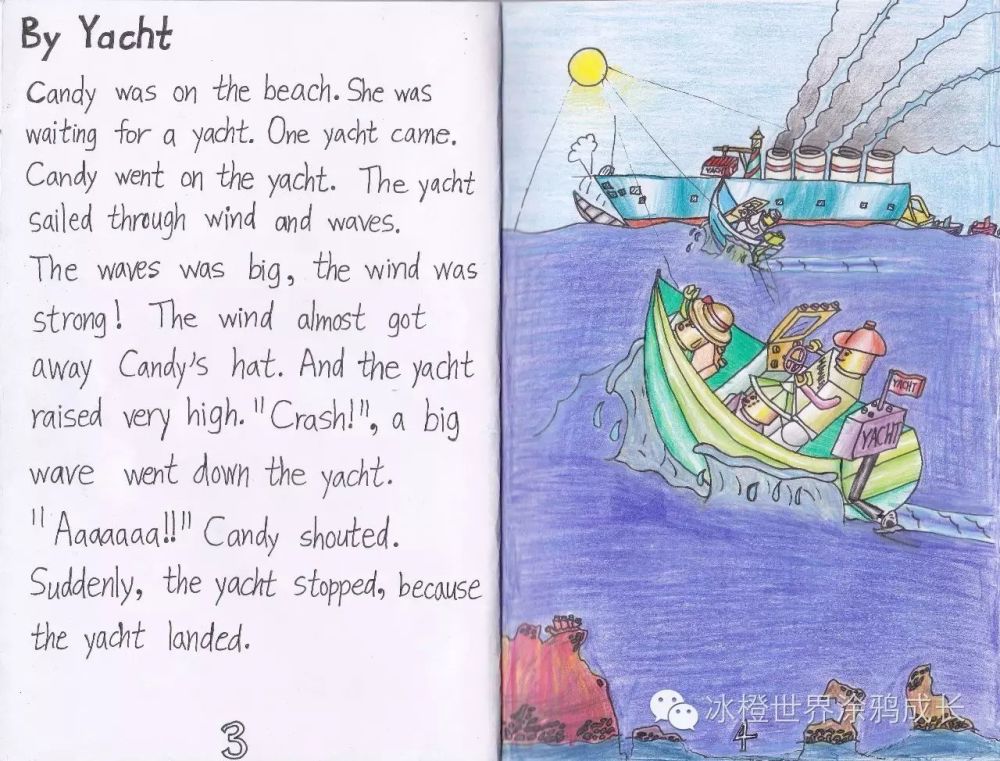 By Yacht
Candy was on the beach. She was
waiting for a yacht. One yacht came.
Candy went on the yacht. The yacht
sailed through wind and waves.
The waves was big, the wind was
strong! The wind almost got
away Candy's hat. And the yacht
raised very high. "Crash!", a big
wave went down the yacht.
"Aaaaaaa!!" Candy shouted.
Suddenly, the yacht stopped, because
the yacht landed.
3
YACHT
YACHT
YACHT
冰橙世界涂鸦成长
4